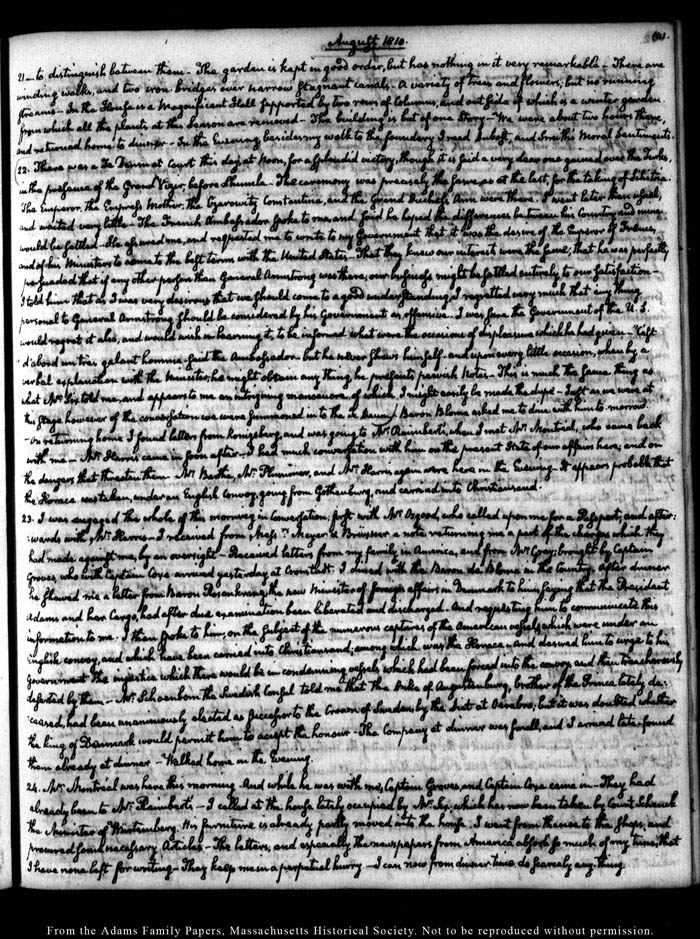 August 1810.
21— to distinguish between them— The garden is kept in good order, but has nothing in it very remarkable— There are
winding walks, and two iron bridges over narrow stagnant canals— A variety of trees and flowers, but no running
streams— In the House is a Magnificent Hall supported by two rows of Columns, and out side of which is a winter garden
from which all the plants at this Season are removed— The building is but of one Story— We were about two hours there,
and returned home to dinner— In the Evening besides my walk to the foundery I read and Smith's Moral Sentiments.
22. There was a Te Deum at Court this day at Noon, for a splendid victory, though it is said a very dear one gained over the Turks,
in the presence of the Grand Vizer, before Shumla— The ceremony was precisely the same, as at the last, for the taking of Silistria.
The Emperor, the Empress Mother, the Czarowitz Constantine, and the Grand Duchess Ann were there. I went later than usual,
and waited very little— The French Ambassador spoke to me, and said he hoped the differences between his Country and mine
would be settled— He assured me, and requested me to write to my Government that it was the desire of the Emperor of France,
and of his Ministers to come to the best terms with the United States— That they knew our interests were the same, that he was perfectly
persuaded that if any other person than General Armstrong was there, our business might be settled entirely to our satisfaction—
I told him that as I was very desirous that we should come to a good understanding, I regretted very much that any thing
personal to General Armstrong should be considered by his Government as offensive. I was sure the Government of the U. S.
would regret it also, and would wish on learning it, to be informed what were the occasions of displeasure which he had given— "C'est
d'abord un très galant homme" said the Ambassador— but he never shews himself— and upon every little occasion, when by a
verbal explanation with the Minister, he might obtain any thing, he presents peevish Notes— This is much the same thing as
what Mr Six told me, and appears to me an intriguing manoeuvre, of which I might easily be made the dupe— Just as we were at
this stage however of the conversation we were summoned in to the Te Deum; Baron Blome asked me to dine with him to-morrow
— On returning home I found letters from Konigsberg, and was going to Mr Raimbert's, when I met Mr Montréal, who came back
with me— Mr Harris came in soon after— I had much conversation with him on the present State of our affairs here; and on
the dangers that threaten them— Mr Bartho, Mr Plummer, and Mr Harris again were here in the Evening— It appears probable that
the Horace was taken, under an English Convoy, going from Gothenburg, and carried into Christiansand.
23. I was engaged the whole of this morning in Conversation; first with Mr Osgood, who called upon me for a Passport, and after:
:wards with Mr Harris— I received from Messrs Meyer & Brüxner a note returning me a part of the charges which they
had made against me, by an oversight— Received letters from my family in America, and from Mr Gray; brought by Captain
Groves, who with Captain Coxe arrived yesterday at Cronstadt. I dined with the Baron de Blome in the Country. After dinner
he shewed me a letter from Baron Rosenkranz, the new Minister of foreign affairs in Denmark to him, saying that the President
Adams and her Cargo, had after due examination been liberated and discharged. And requesting him to communicate this
information to me. I then spoke to him, on the Subject of the numerous captures of the American vessels which were under an
English convoy, and which have been carried into Christiansand; among which was the Horace. And desired him to urge to his
Government the injustice which there would be in condemning vessels which had been forced into the convoy, and then treacherously
deserted by them— Mr Schoenbom the Swedish Consul told me that the Duke of Augustenburg, brother of the Prince lately de:
:ceased, had been unanimously elected as Successor to the Crown of Sweden by the Diet at Oerebro, but it was doubted whether
the king of Denmark would permit him to accept the honour— The Company at dinner was small, and I arrived late, found
them already at dinner— Walked home in the Evening.
24. Mr Montréal was here this morning. And while he was with me, Captain Groves, and Captain Coxe came in— They had
already been to Mr Raimbert's— I called at the house lately occupied by Mr Six, which has now been taken by Count Schenck
the Minister of Würtemberg. His furniture is already partly moved into the house. I went from thence to the Shops, and
procured some necessary Articles— The letters, and especially the newspapers from America absorb so much of my time, that
I have none left for writing— They keep me in a perpetual hurry— I can now from dinner time, do scarcely any thing.
From the Adams Family Papers, Massachusetts Historical Society. Not to be reproduced without permission.